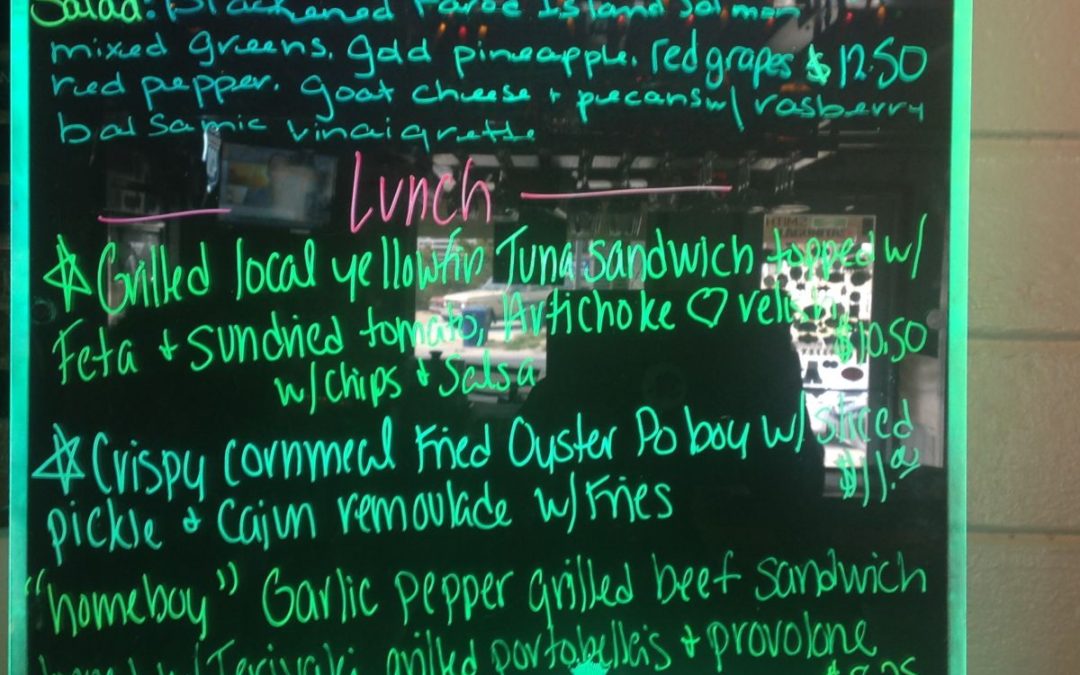 Salad: Blackened Faroe Island Salmon
mixed greens, gold pineapple, red grapes $12.50
red pepper, goat cheese + pecans w/ rasberry
balsamic vinaigrette
Lunch
☆Grilled local yellowfin Tuna sandwich topped w/
Feta + sundried tomato, Artichoke ♡ relish
$10.50
w/ chips + salsa
☆Crispy cornmeal fried Oyster Po boy w/ sliced
$11.00
pickle + cajun remoulade w/ Fries
"homeboy" Garlic pepper grilled beef sandwich
w/ Teriyaki grilled portobellas + provolone